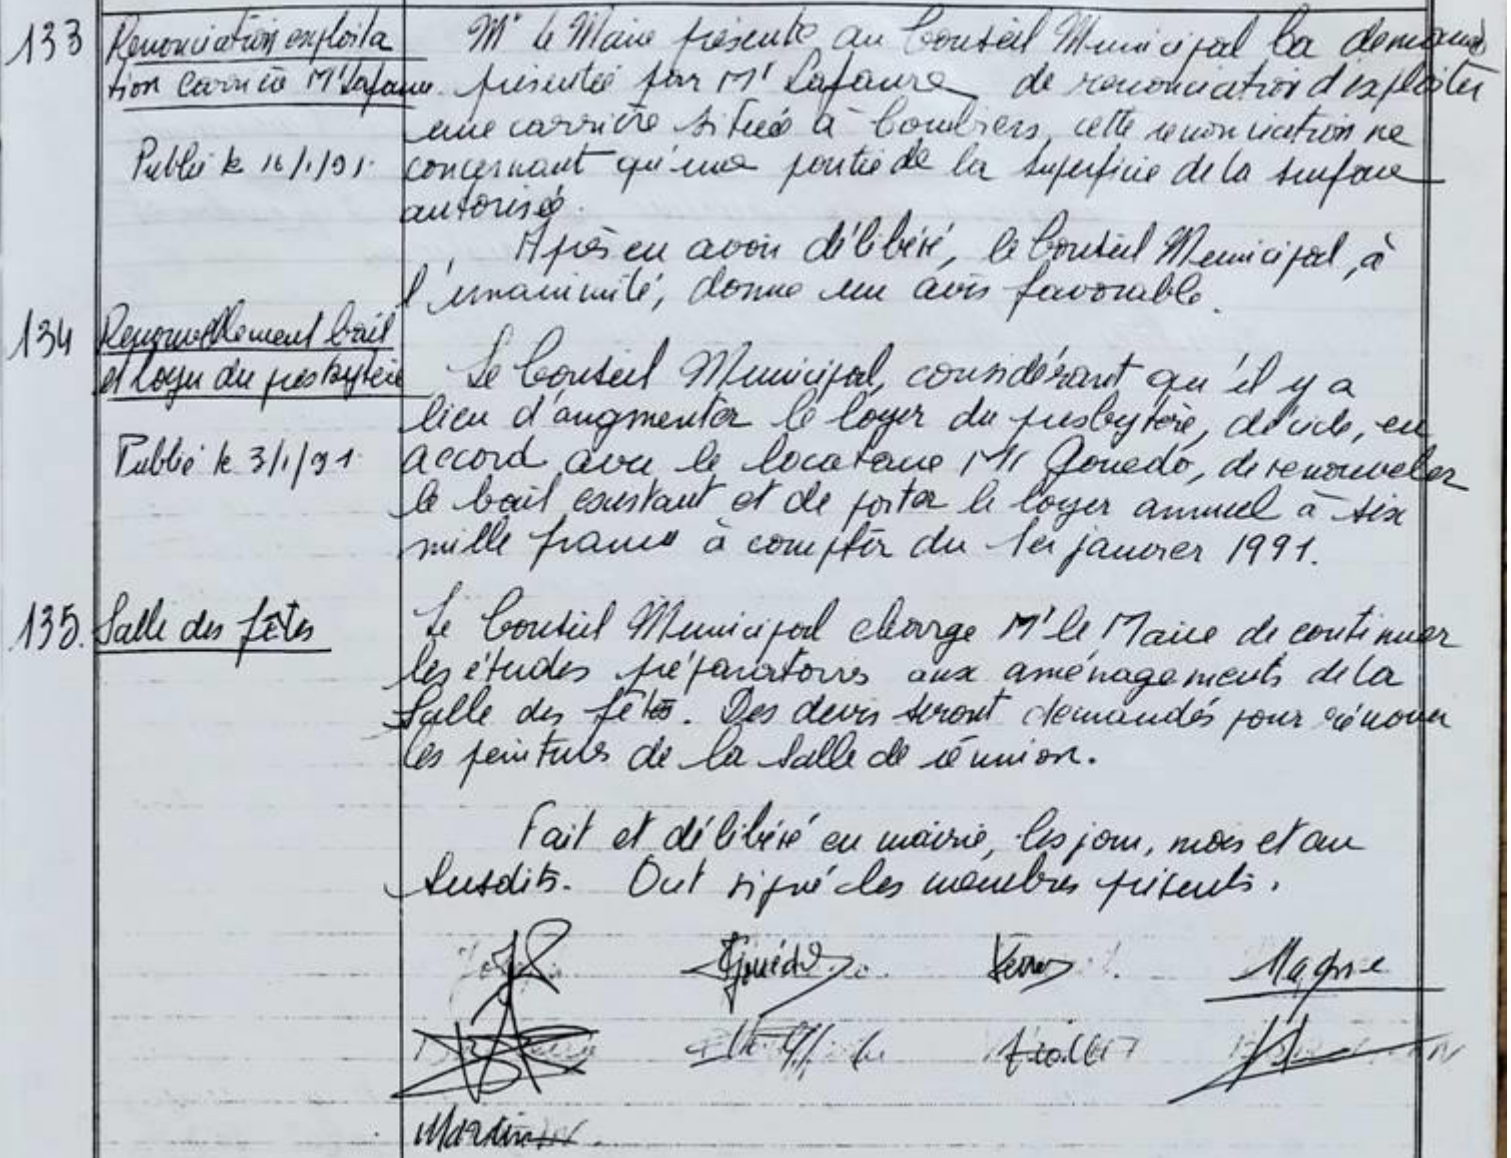 133 Renonciation exploita
tion carrière Mr Lafaure
Publié le 16/1/91.
Mr le Maire présente au Conseil Municipal la demande
présentée par Mr Lafaure de renonciation d'exploiter
une carrière située à Combiers, cette renonciation ne
concernant qu'une partie de la superficie de la surface
autorisée.
Après en avoir délibéré, le Conseil Municipal, à
l'unanimité, donne un avis favorable.
134 Renouvellement bail
et loyer du presbytère
Publié le 3/1/91.
Le Conseil Municipal, considérant qu'il y a
lieu d'augmenter le loyer du presbytère, décide, en
accord avec le locataire Mr Gouédo, de renouveler
le bail existant et de porter le loyer annuel à six
mille francs à compter du 1er janvier 1991.
135. Salle des fêtes
Le Conseil Municipal charge Mr le Maire de continuer
les études préparatoires aux aménagements de la
Salle des fêtes. Des devis seront demandés pour rénover
les peintures de la salle de réunion.
Fait et délibéré en mairie, les jour, mois et an
susdits. Ont signé les membres présents.
Martin